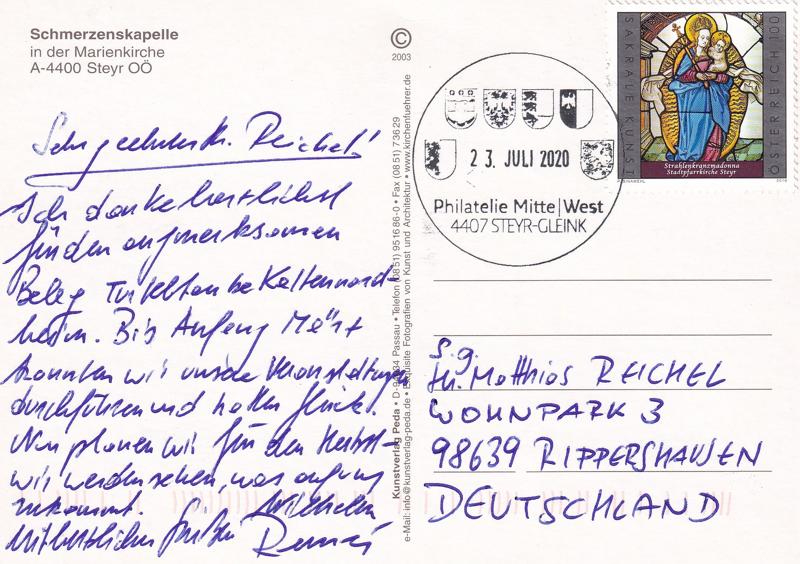 Schmerzenskapelle
in der Marienkirche
A-4400 Steyr OÖ
Sehr geehrter Hr. Reichel!
Ich danke herzlichst
für den aufmerksamen
Beleg Kaltennord-
heim. Bis Anfang März
konnten wir unsere Veranstaltungen
durchführen und hatten Glück.
Nun planen wir für den Herbst -
wir werden sehen, was auf uns
zukommt.
Mit herzlichen Grüßen
© 
2003
Kunstverlag Peda • D-94034 Passau • Telefon (08 51) 9516 86-0 • Fax (08 51) 7 36 29
e-Mail: info@kunstverlag-peda.de • Exquisite Fotografien von Kunst und Architektur • www.kirchenfuehrer.de
23. JULI 2020
Philatelie Mitte|West
4407 STEYR-GLEINK
SAKRALE KUNST
ÖSTERREICH 100
Strahlenkranzmadonna
Stadtpfarrkirche Steyr
S.g.
Hr. Matthias REICHEL
WOHNPARK 3
98639 RIPPERSHAUSEN
DEUTSCHLAND